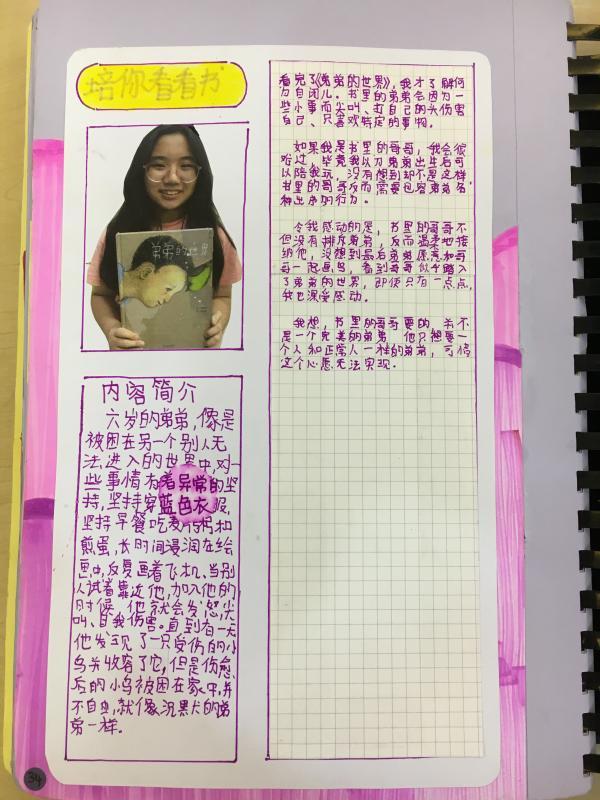 培你看看书
弟弟的世界
内容简介
六岁的弟弟，像是
被困在另一个别人无
法进入的世界中，对一
些事情有着异常的坚
持，坚持穿蓝色衣服，
坚持早餐吃麦片粥和
煎蛋，长时间浸润在绘
画中，反复画着飞机、当别
人试着靠近他，加入他的
时候，他就会发怒，尖
叫、自我伤害。直到有一天
他发现了一只受伤的小
鸟并收容了它，但是伤愈
后的小鸟被困在家中，并
不自由，就像沉默犬的弟
弟一样。
看完了《弟弟的世界》，我才了解何
为自闭儿。书里的弟弟会因为一
些小事而尖叫、打自己的头伤害
自己、只喜欢特定的事物。
如果我是书里的哥哥，我会很
难过，毕竟我以为弟弟出生后可
以陪我玩，没有想到却不是这样
书里的哥哥反而需要包容弟弟各
种出序的行为。
令我感动的是，书里的哥哥不
但没有排斥弟弟，反而温柔地接
纳他，没想到最后弟弟愿意和哥
哥一起画鸟，看到哥哥似乎踏入
了弟弟的世界，即使只有一点点，
我也深受感动。
我想，书里的哥哥要的，并不
是一个完美的弟弟，他只想要一
个人和正常人一样的弟弟，可惜
这个心愿无法实现。
34